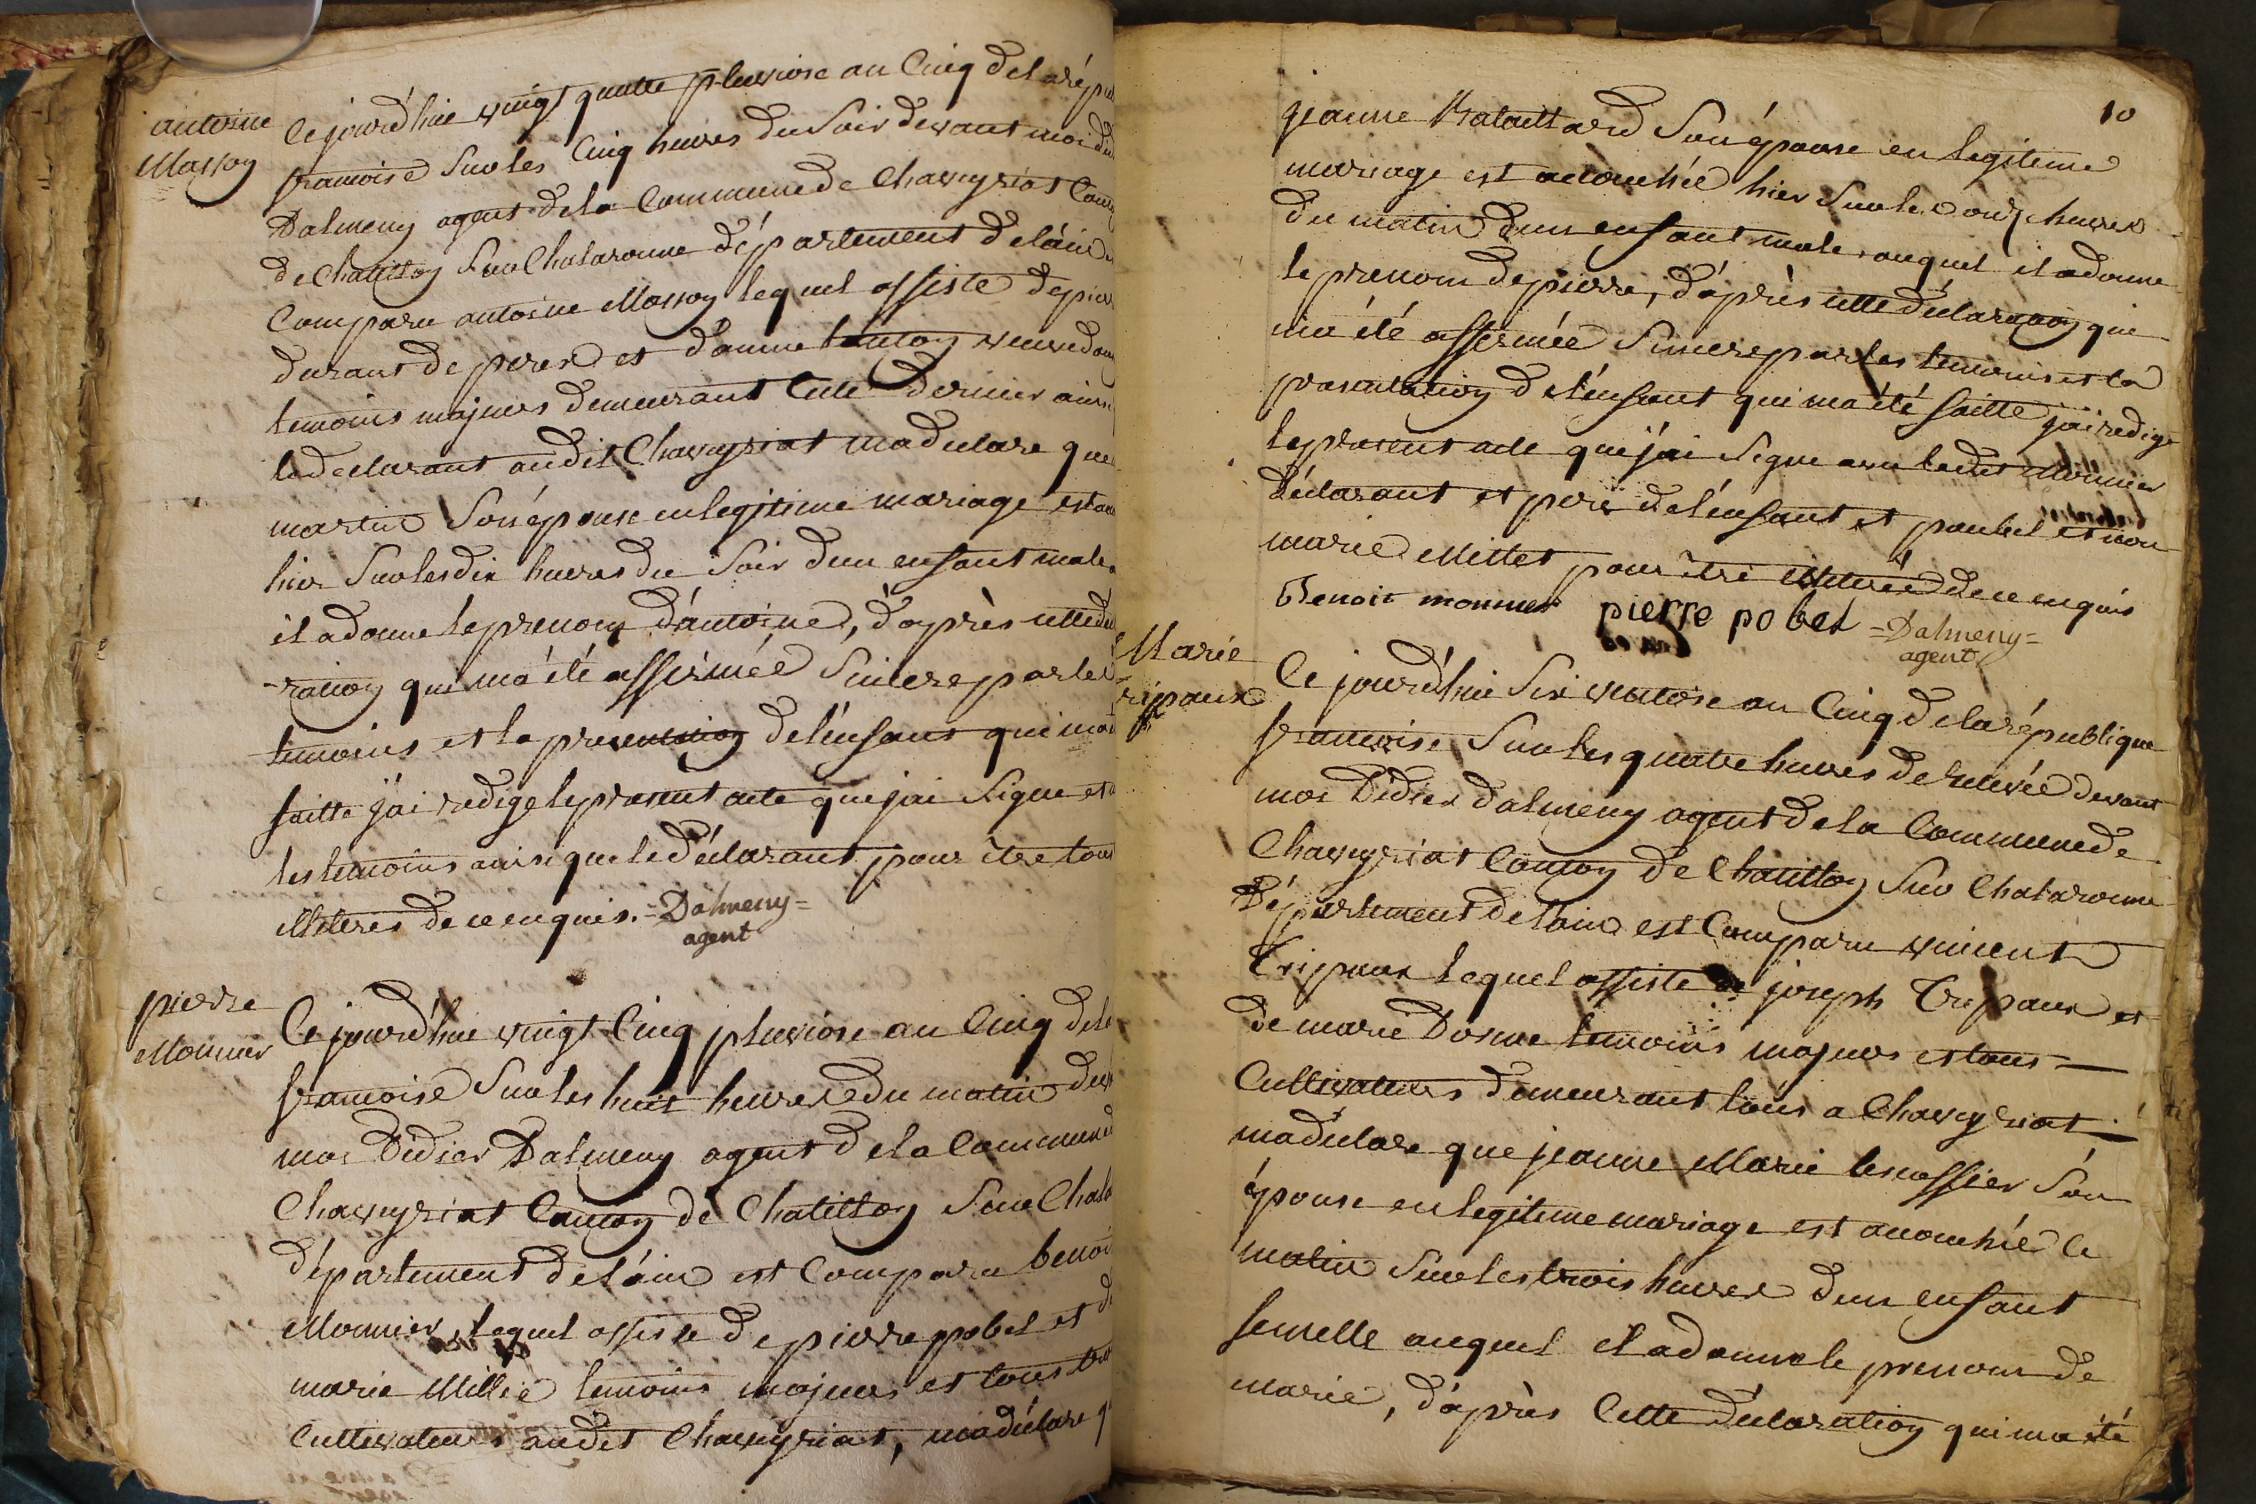 antoine
Masson
Ce jourd'hui vingt quatre pluviose an Cinq de la répu
francoise Sur les Cinq heures du Soir devant moi di
Dalmeny agent de la Commune de Chaveyriat Can
de Chatillon Sur Chalaronne département de l'ain
Comparu antoine Masson lequel assiste de pier
durant de peres et d'anne veuve
temoins majeurs demeurant dernier ains
le declarant audit Chaveyriat ma declare que
martin Son épouse en legitime mariage est
hier Sur les dix heures du Soir d'un enfant male
il a donne le prenom d'antoine, d'après cette d
ration qui m'a été affirmée Sincere par le
temoins et la presentation de l'enfant qui m'a
faitte j'ai redige le present acte que j'ai Signe et
les temoins ainsi que le déclarant pour être tous
illiteres de ce enquis. =Dalmeny=
agent
pierre
Monnier
Ce jourd'hui vingt Cinq pluviose an Cinq de la
francoise Sur les huit heures du matin dev
moi Didier Dalmeny agent de la Commune d
Chaveyriat Canton de Chatillon Sur Chala
département de l'ain est Comparu benoi
Monnier, lequel assiste de pierre pobel et d
marie Millie temoins majeurs et tous
Cultivateurs audit Chaveyriat, ma déclare q
10
jeanne Bataillard Son épouse en legitime
mariage est acouchée hier Sur les onze heures
du matin d'un enfant male auquel il a donne
le prenom de pierre, d'après cette déclaration qui
m'a été affirmée Sincere par les temoins et la
presentation de l'enfant qui m'a été faitte j'ai redige
le present acte que j'ai Signe avec ledit Monnier
déclarant et pere de l'enfant et paubel et non
marie Millet pour être illiterée de ce enquis
Benoit monnier pierre pobel =Dalmeny=
agent
Marie
tripaux
Ce jourd'hui Six ventose an Cinq de la république
francoise Sur les quatre heures de relevée devant
moi Didier Dalmeny agent de la Commune de
Chaveyriat Canton de Chatillon Sur Chalaronne
Département de l'ain est Comparu vincent
Tripaux lequel assiste de joseph Tripaux et
de marie temoins majeurs et tous
Cultivateurs demeurant tous a Chaveyriat
ma déclare que jeanne Marie Son
épouse en legitime mariage est acouchée Ce
matin Sur les trois heures d'un enfant
femelle auquel il a donne le prenom de
marie, d'après Cette déclaration qui m'a été